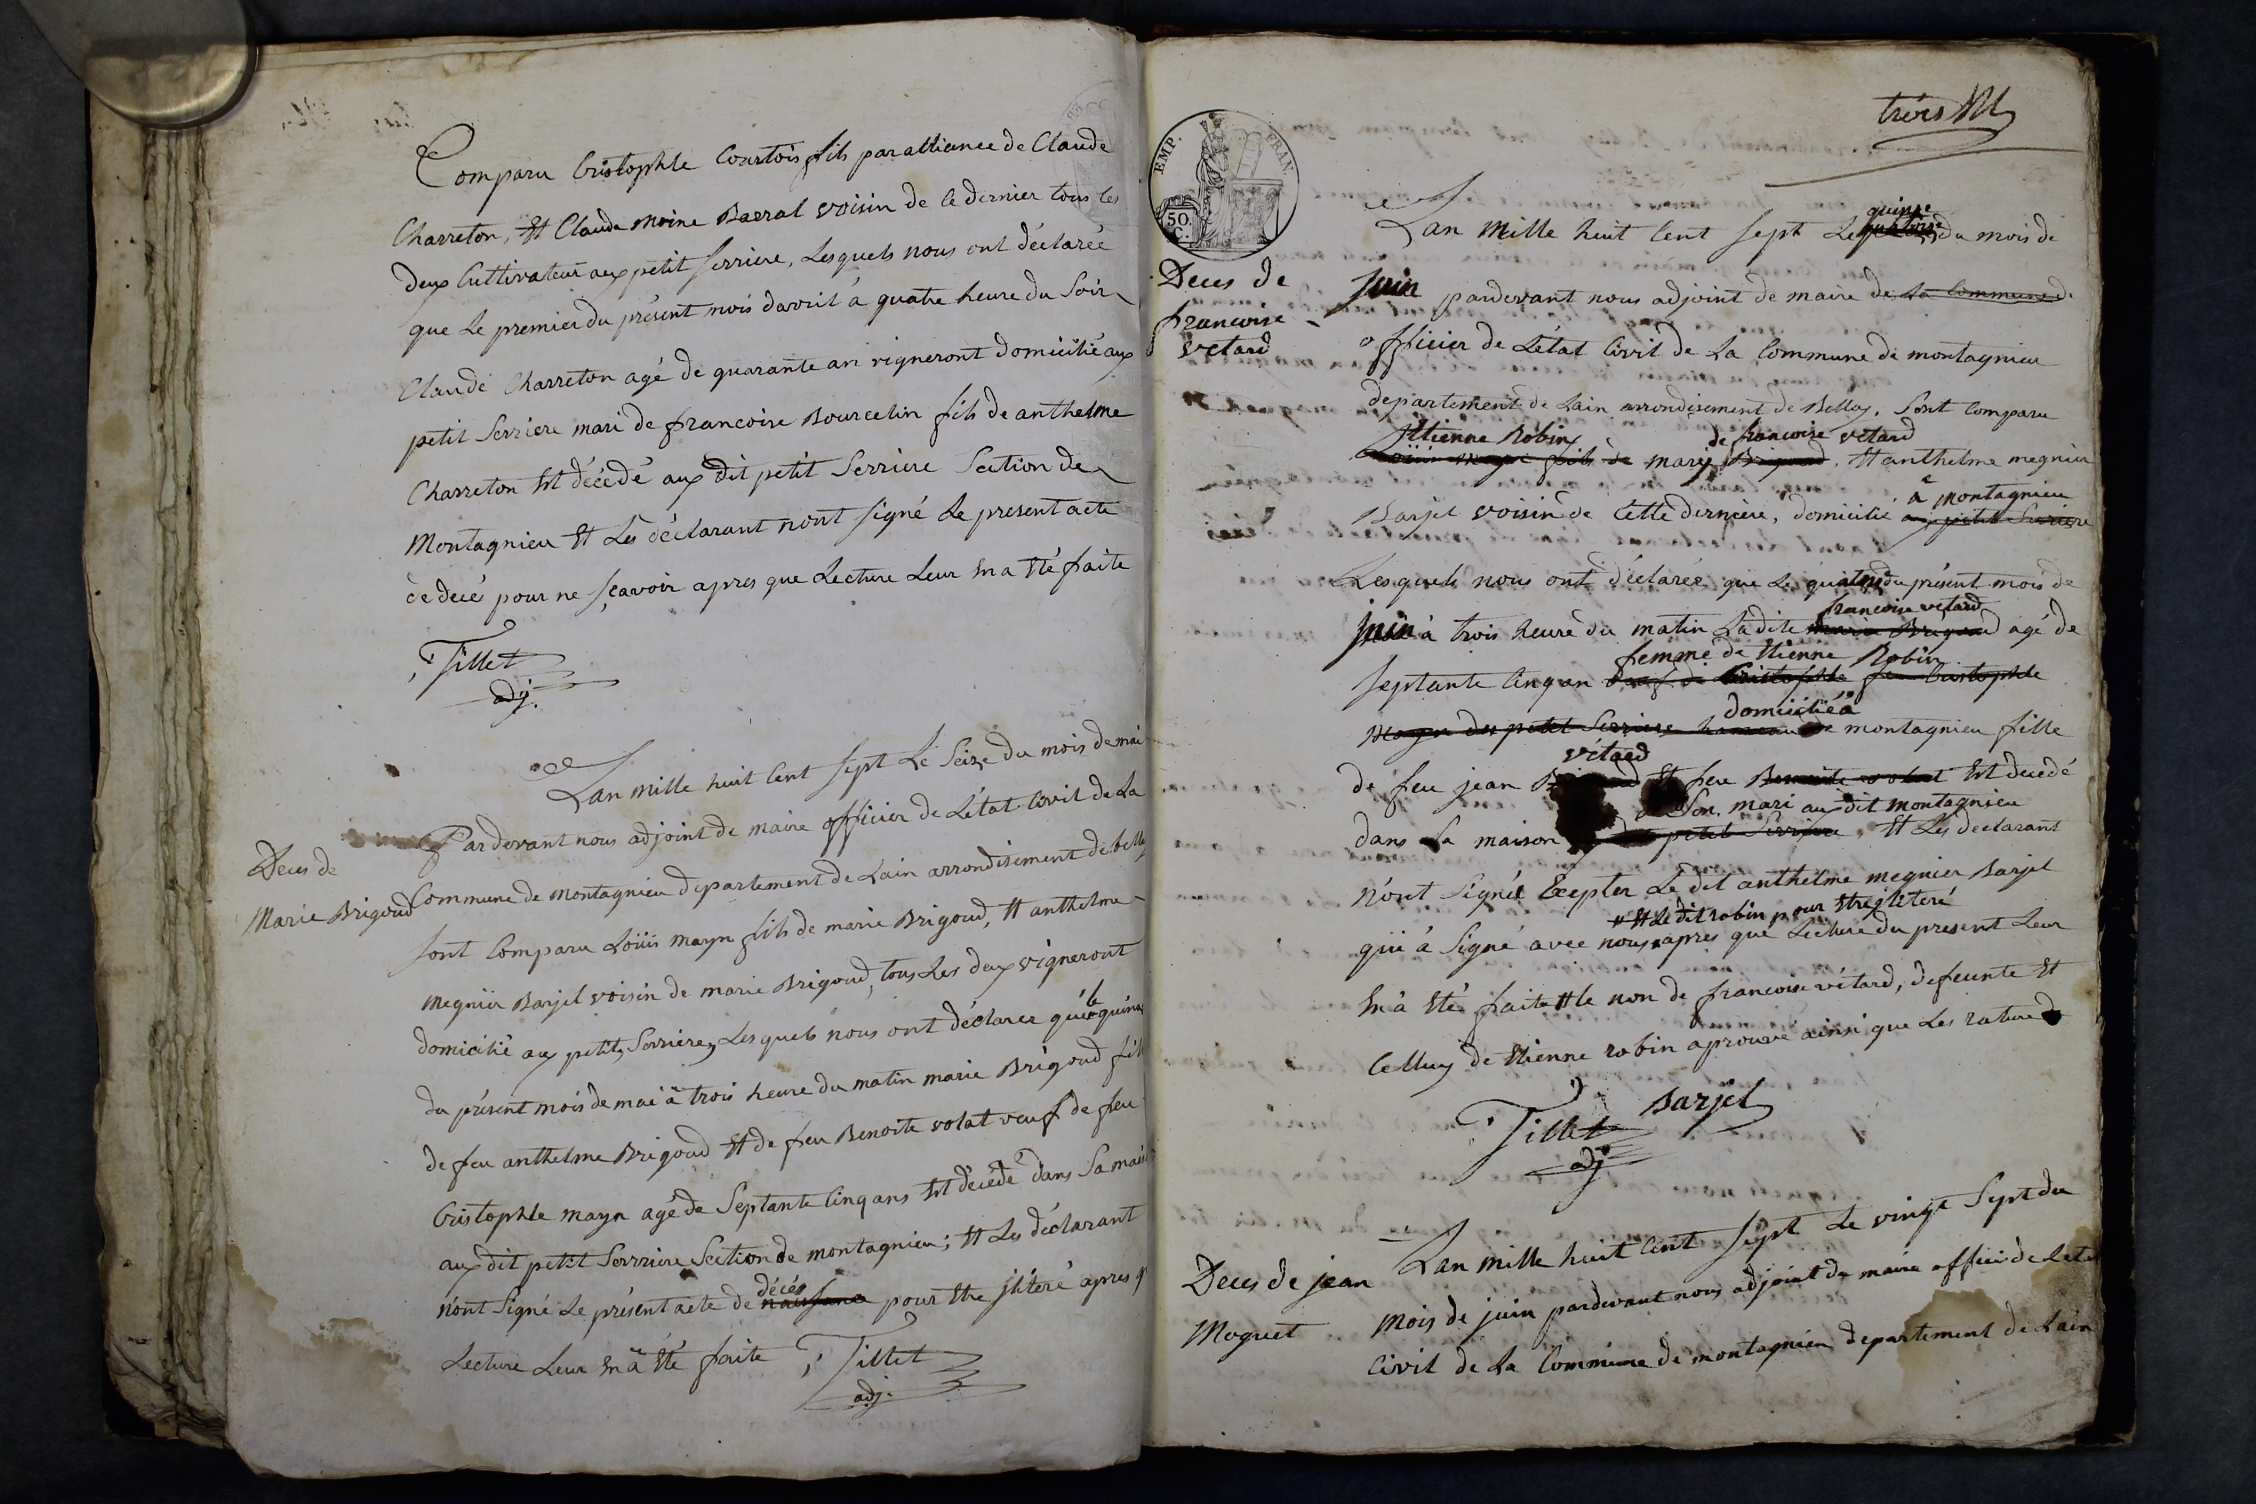 Comparu Cristophle Courtois fils par alliance de Claude
Charreton, Et Claude moine Barral voisin de Ce dernier tous les
deux Cultivateur aux petit Serriere, Lesquels nous ont déclarée
que Le premier du présent mois davril á quatre heure du Soir
Claude Charreton agé de quarante an vigneront domicilié aux
petit Serriere mari de francoise Bourcelin fils de anthelme
Charreton Est décédé aux dit petit Serriere Section de
Montagnieu Et Les déclarant n'ont signé Le present acte
de decé pour ne sçavoir apres que Lecture Leur En a Eté faite
Tillet
adj.
Lan mille huit Cent sept Le Seize du mois de mai
Deces de
Marie Brigoud
Pardevant nous adjoint de maire officier de L'état Civil de La
Commune de montagnieu departement de Lain arrondisement de belley
sont Comparu Loüis mayn fils de marie Brigoud, Et anthelme
megnier Barjel voisin de marie Brigoud, tous Les deux vigneront
domicilié aux petit Serriere, Lesquels nous ont déclaree que le quinze
du présent mois de mai à trois heure du matin marie Brigoud fill
de feu anthelme Brigoud Et de feu Benoite volat veuf de feu
Cristophle mayn agé de Septante Cinq ans Est décédé dans Sa mais
aux dit petit Serriere Section de montagnieu; Et Les déclarant
n'ont Signé Le présent acte de naissance décés pour Etre jliteré apres q
Lecture Leur En a Eté faite Tillet
adj.
trois
EMP. FRAN.
50 C.
Lan mille huit Cent sept Le quinze du mois de
Deces de
francoise
vetard
juin pardevant nous adjoint de maire de La Commune d
officier de L'état Civil de La Commune de montagnieu
departement de Lain arrondisement de Belley. Sont Comparu
Etienne Robin de francoise vetard
fils de mary Brigoud, Et anthelme megnier
Barjel voisin de Cette derniere, domicilié aux petit Serriere à Montagnieu
Lesquels nous ont déclarée que Le quatorze du présent mois de
juin à trois heure du matin Ladite francoise vetard agé de
femme de Etienne Robin
septante Cinq an veuf de Cristophle feu Cristophle
domiciliée à
mayn des petit Serriere hameau de montagnieu fille
vetard
de feu jean Et feu Benoite volat Est decedé
Son mari au dit montagnieu
dans La maison petit Serriere, Et Les declarant
n'ont signée Excepter Le dit anthelme megnier Barjel
Et Le dit robin pour Etre jliteré
qui à Signé avec nous apres que Lecture du present Leur
En a Eté faite Le non de francoise vétard, defeunte Et
Celluy de Etienne robin aprouvé ainsi que Les rature
Tillet Barjel
adj
Lan mille huit Cent sept Le vingt Sept du
Deces de jean
Moguet
mois de juin pardevant nous adjoint de maire officier de Leta
Civil de La Commune de montagnieu departement de Lain